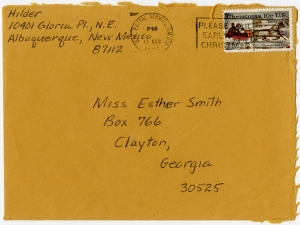 Hilder
10401 Gloria Pl., N.E.
Albuquerque, New Mexico
87112
PM
PLEASE
EARLY
CHRIST
Christmas 10c U.S.
Miss Esther Smith
Box 766
Clayton,
Georgia
30525